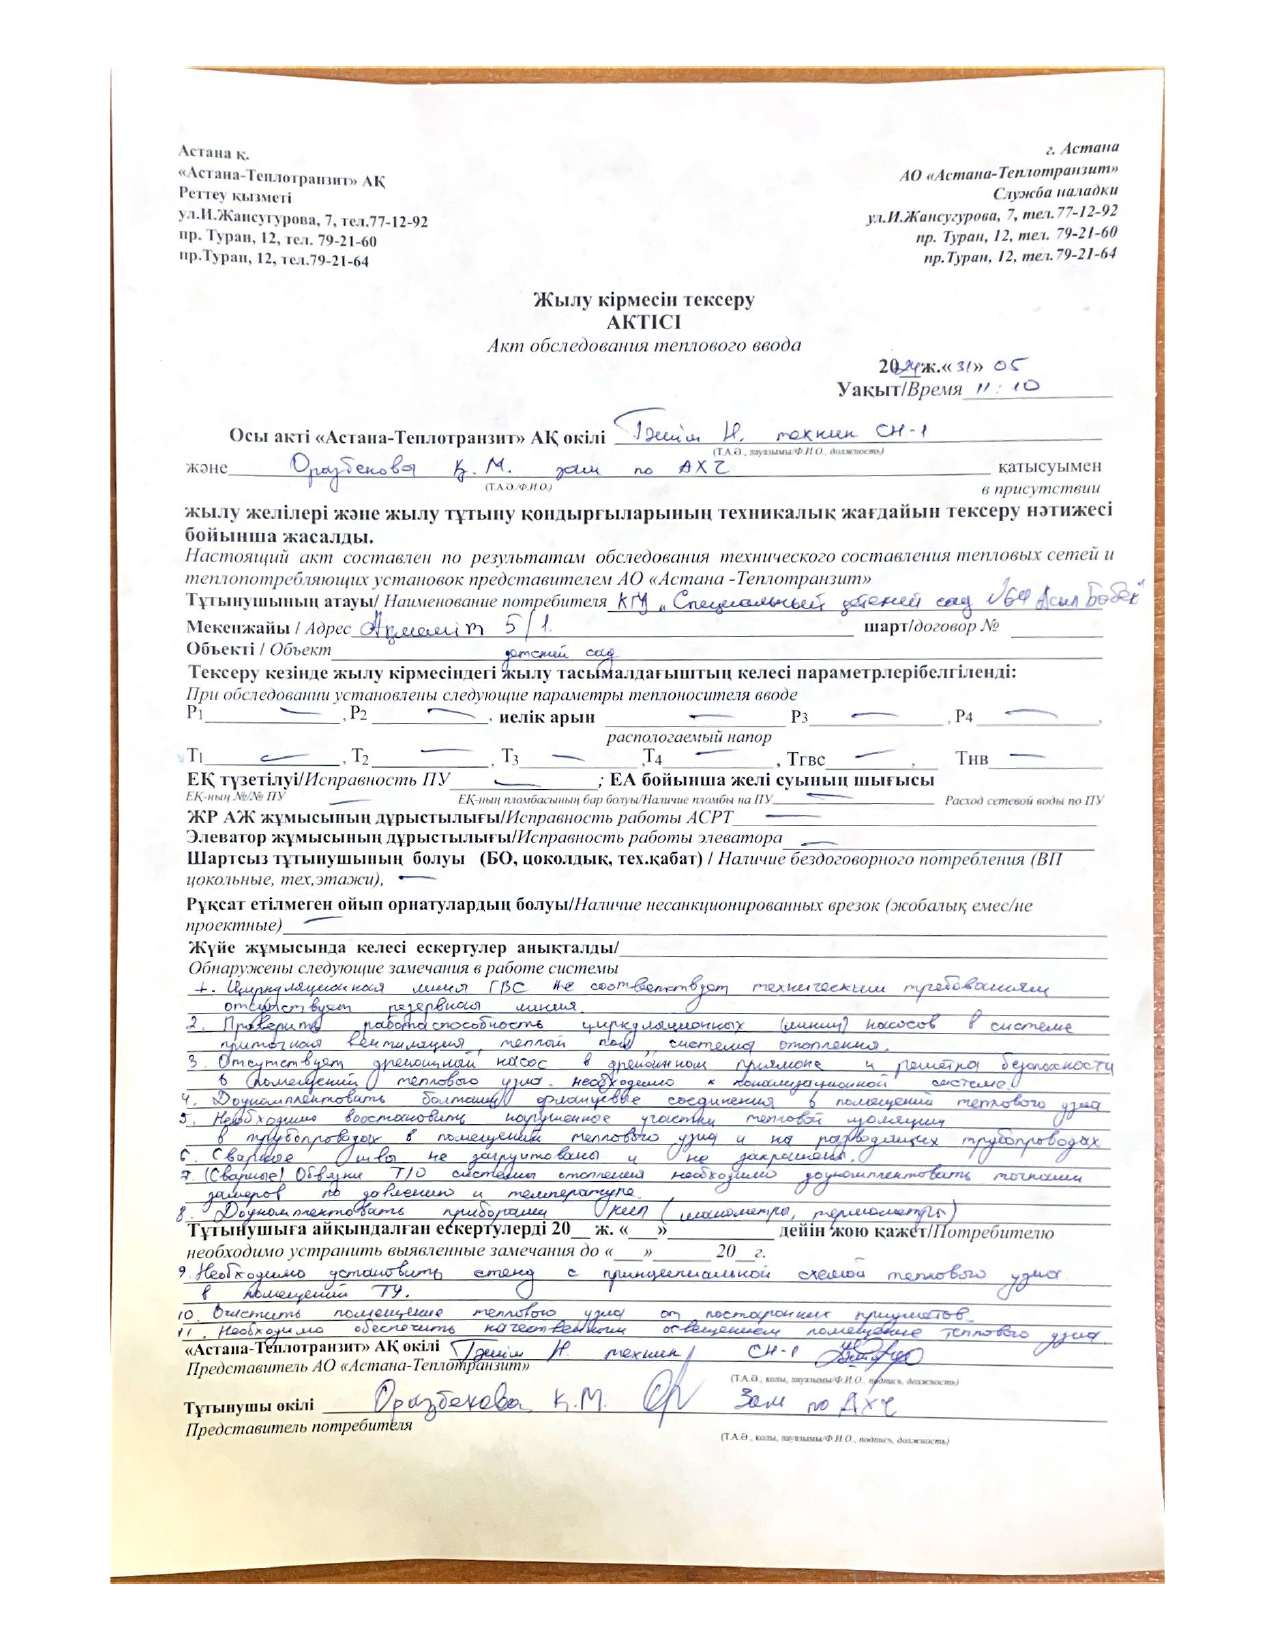 Астана қ.
«Астана-Теплотранзит» АҚ
Реттеу қызметі
ул.И.Жансугурова, 7, тел.77-12-92
пр. Туран, 12, тел. 79-21-60
пр.Туран, 12, тел.79-21-64
г. Астана
АО «Астана-Теплотранзит»
Служба наладки
ул.И.Жансугурова, 7, тел. 77-12-92
пр. Туран, 12, тел. 79-21-60
пр.Туран, 12, тел. 79-21-64
Жылу кірмесін тексеру
АКТІСІ
Акт обследования теплового ввода
2024 ж.«31» 05
Уақыт/Время 11:10
Осы акті «Астана-Теплотранзит» АҚ өкілі Тәшім Н. техник СН-1
(Т.А.Ә., лауазымы/Ф.И.О., должность)
және Оразбекова Қ.М. зам по АХЧ қатысуымен
(Т.А.Ә/Ф.И.О.) в присутствии
жылу желілері және жылу тұтыну қондырғыларының техникалық жағдайын тексеру нәтижесі
бойынша жасалды.
Настоящий акт составлен по результатам обследования технического составления тепловых сетей и
теплопотребляющих установок представителем АО «Астана -Теплотранзит»
Тұтынушының атауы/ Наименование потребителя КГУ „Специальный детский сад №64 Асыл Бөбек"
Мекенжайы / Адрес Ақмешіт 5/1. шарт/договор №
Объекті / Объект детский сад
Тексеру кезінде жылу кірмесіндегі жылу тасымалдағыштың келесі параметрлерібелгіленді:
При обследовании установлены следующие параметры теплоносителя вводе
P1 — , P2 — , иелік арын — P3 — , P4 — ,
распологаемый напор
T1 — , T2 — , T3 — , T4 — , Тгвс — , Тнв —
ЕҚ түзетілуі/Исправность ПУ — ; ЕА бойынша желі суының шығысы
ЕҚ-ның №/№ ПУ — ЕҚ-ның пломбасының бар болуы/Наличие пломбы на ПУ — Расход сетевой воды по ПУ
ЖР АЖ жұмысының дұрыстылығы/Исправность работы АСРТ —
Элеватор жұмысының дұрыстылығы/Исправность работы элеватора —
Шартсыз тұтынушының болуы (БО, цоколдық, тех.қабат) / Наличие бездоговорного потребления (ВП
цокольные, тех,этажи), —
Рұқсат етілмеген ойып орнатулардың болуы/Наличие несанкционированных врезок (жобалық емес/не
проектные) —
Жүйе жұмысында келесі ескертулер анықталды/
Обнаружены следующие замечания в работе системы
1. Циркуляционная линия ГВС не соответствует техническим требованиям
отсутствует резервная линия.
2. Проверить работаспособность циркуляционных (линии) насосов в системе
приточная вентиляция, теплый пол, система отопления.
3. Отсутствует дренощный насос в дренажном приямоке и решетка безопасности
в помещений теплового узла. необходимо к канализационной системе.
4. Доукомплектовать болтами фланцевые соединения в помещений теплового узла
5. Необходимо востановить нарушенное участки тепловой изоляции
в трубопроводах в помещений теплового узла и на разводящих трубопроводах
6. Сварные швы не загрунтованы и не закрашены.
7. (Сварные) Обвязки Т/О системы отопления необходимо доукомплектовать точками
замеров по давлению и температуре.
8. Доукомплектовать приборами КИП (манометры, термометры)
Тұтынушыға айқындалған ескертулерді 20__ ж. «___»__________ дейін жою қажет/Потребителю
необходимо устранить выявленные замечания до «___»______ 20__г.
9. Необходимо установить стенд с принципиальной схемой теплового узла
в помещений ТУ.
10. Очистить помещение теплового узла от посторонних предметов.
11. Необходимо обеспечить качественным освещением помещение теплового узла.
«Астана-Теплотранзит» АҚ өкілі Тәшім Н. техник СН-1
Представитель АО «Астана-Теплотранзит»
(Т.А.Ә., қолы, лауазымы/Ф.И.О., подпись, должность)
Тұтынушы өкілі Оразбекова Қ.М. Зам по АХЧ
Представитель потребителя
(Т.А.Ә., қолы, лауазымы/Ф.И.О., подпись, должность)